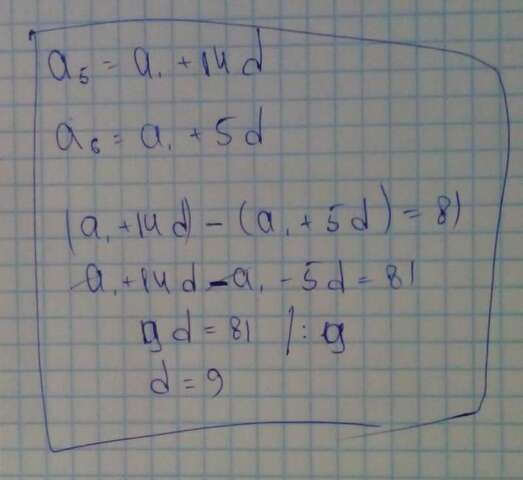 a₅ = a₁ + 14d
a₆ = a₁ + 5d
(a₁ + 14d) - (a₁ + 5d) = 81
a₁ + 14d - a₁ - 5d = 81
9d = 81 /: 9
d = 9